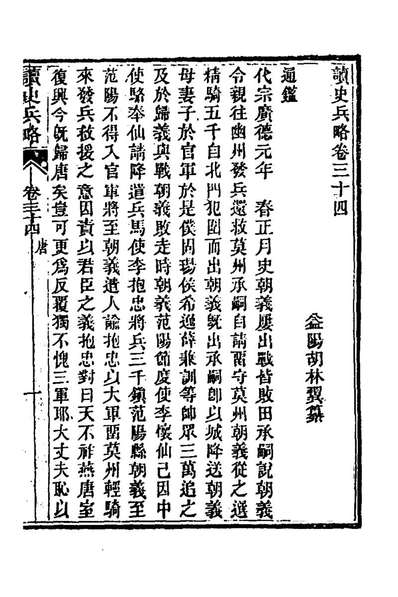 讀史兵略卷三十四
益陽胡林翼纂
通鑑
代宗廣德元年　春正月史朝義屢出戰皆敗田承嗣說朝義
令親往幽州發兵還救莫州承嗣自請留守莫州朝義從之選
精騎五千自北門犯圍而出朝義旣出承嗣卽以城降送朝義
母妻子於官軍於是僕固瑒侯希逸薛兼訓等帥眾三萬追之
及於歸義與戰朝義敗走時朝義范陽節度使李懷仙已因中
使駱奉仙請降遣兵馬使李抱忠將兵三千鎭范陽縣朝義至
范陽不得入官軍將至朝義遣人諭抱忠以大軍畱莫州輕騎
來發兵救援之意因責以君臣之義抱忠對日天不祚燕唐室
復興今旣歸唐矣豈可更爲反覆獨不愧三軍耶大丈夫恥以
讀史兵略
卷三十四
唐
一